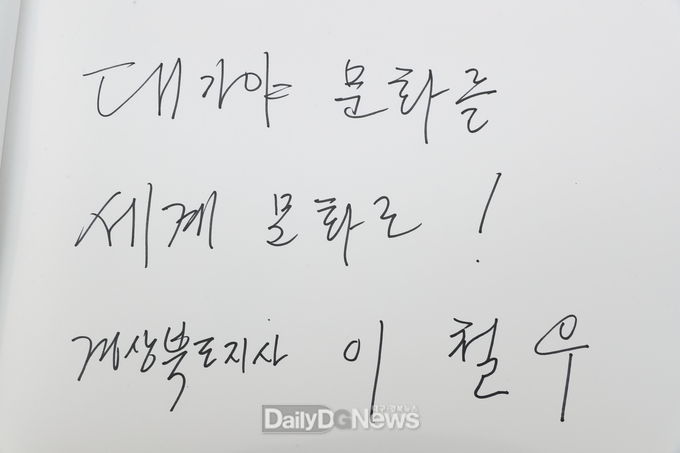 대가야 문화를
세계 문화로!
경상북도지사 이철우
대구·경북뉴스
DailyDGNews